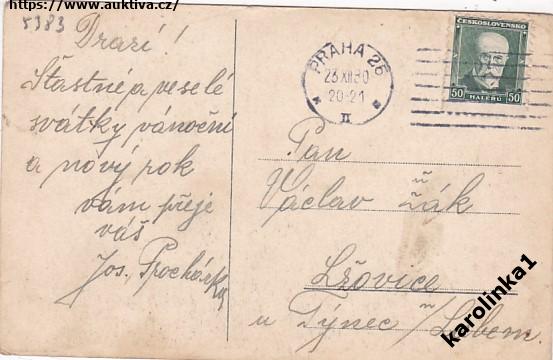 https://www.auktiva.cz/
5383
Drazí!
Šťastné a veselé
svátky vánoční
a nový rok
vám přeje
váš
Jos. Procházka
PRAHA 26
23 XII 30
20-21
II
ČESKOSLOVENSKO
50 HALÉŘŮ 50
Pan
Václav Žák
Lžovice
u Týnec n/Labem.
karolinka1